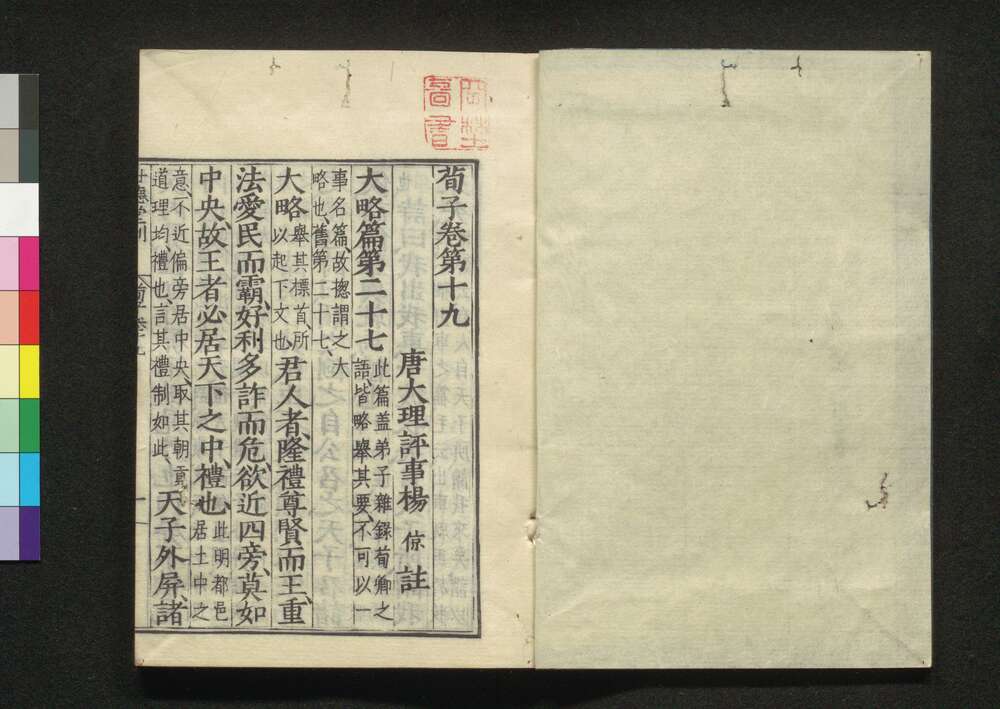 荀子卷第十九
唐大理評事楊倞註
大略篇第二十七 此篇盖弟子雜錄荀卿之語、皆略舉其要、不可以一
事名篇、故摠謂之大略也、舊第二十七、
大略 舉其標首、所以起下文也 君人者、隆禮尊賢而王、重
法愛民而霸、好利多詐而危、欲近四旁、莫如
中央、故王者必居天下之中、禮也、 此明都邑居土中之
意、不近偏旁居中央、取其朝貢道理均、禮也、言其禮制如此、 天子外屏、諸
世德堂刊
圖書